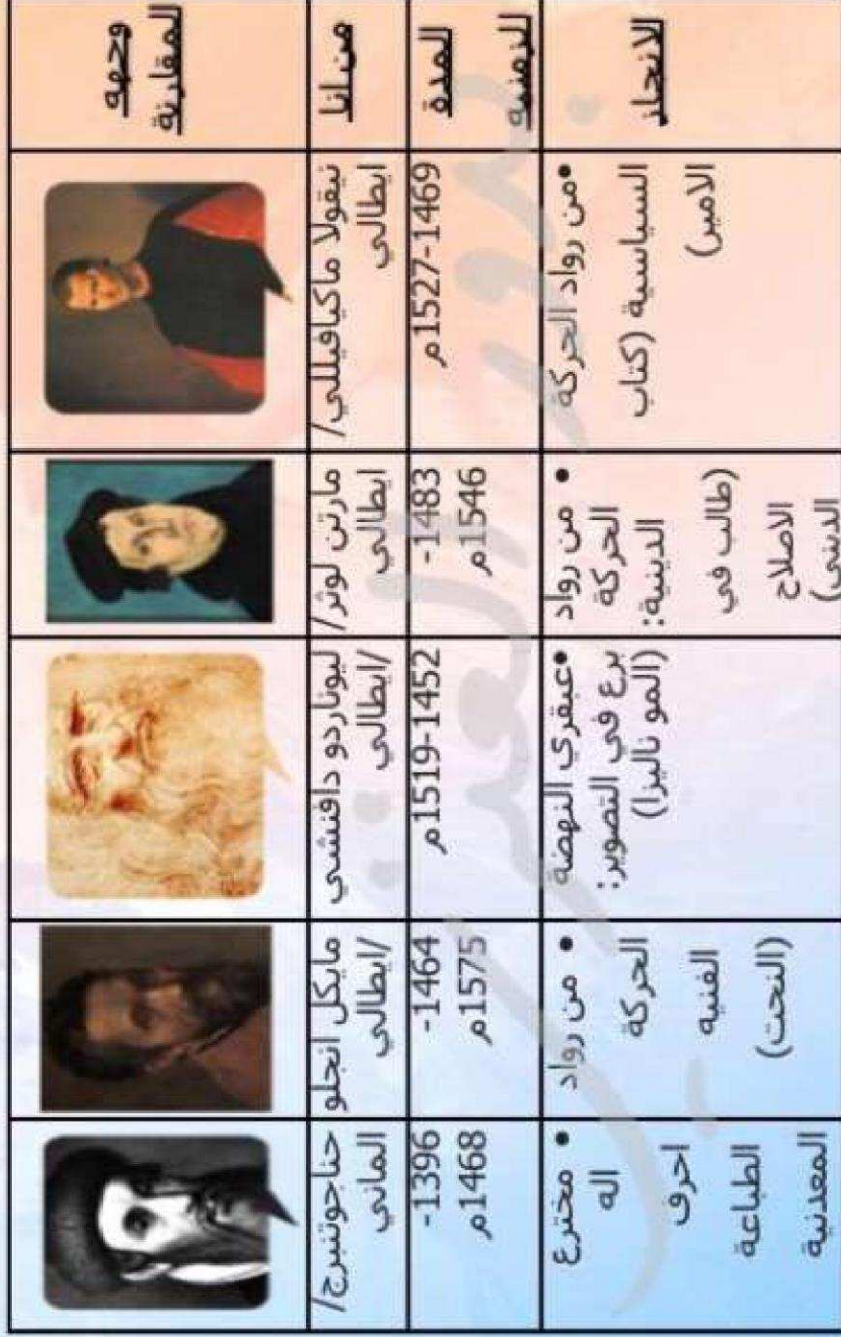 وجهه
المقارنة
من انا
المدة
الزمنيه
الانجاز
نيقولا ماكيافيللي/
ايطالي
1469-1527م
•من رواد الحركة
السياسية (كتاب
الامير)
مارتن لوثر/
ايطالي
1483-
1546م
• من رواد
الحركة
الدينية:
(طالب في
الاصلاح
الديني)
ليوناردو دافنشي
/ايطالي
1452-1519م
•عبقري النهضة
برع في التصوير:
(المو ناليزا)
مايكل انجلو
/ايطالي
1464-
1575م
• من رواد
الحركة
الفنيه
(النحت)
حناجوتنبرج/
الماني
1396-
1468م
• مخترع
اله
احرف
الطباعة
المعدنية